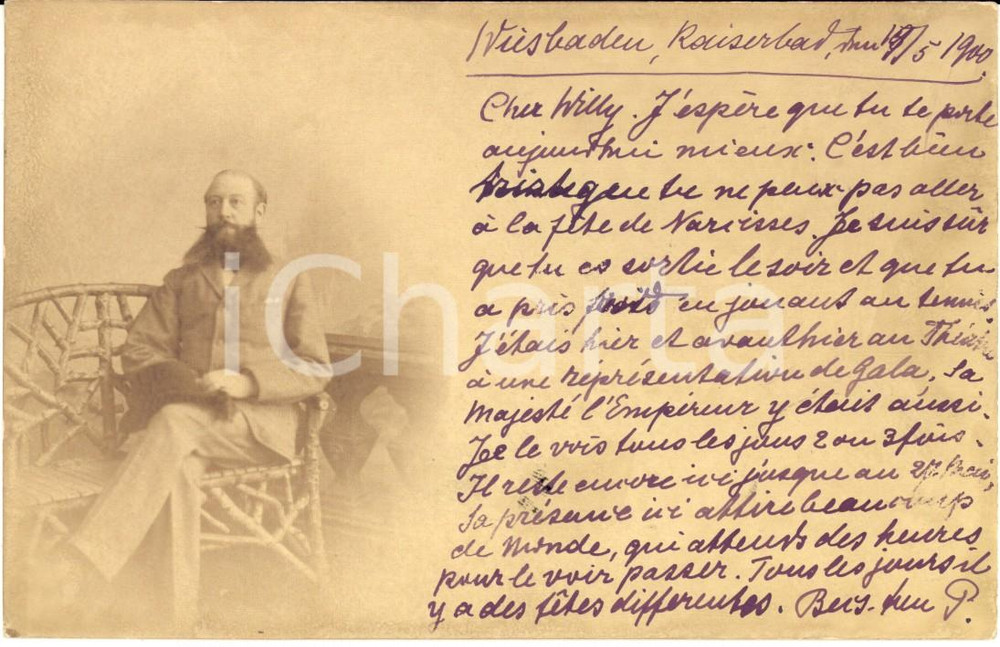 Wiesbaden, Kaiserbad, den 19/5 1900.
Cher Willy. J'espère que tu te porte
aujourd'hui mieux. C'est bien
triste que tu ne peux pas aller
à la fête de Narcisses. Je suis sûr
que tu es sortie le soir et que tu
a pris froid en jouant au tennis.
J'étais hier et avanthier au Théâtre
à une représentation de Gala. Sa
Majesté l'Empéreur y était aussi.
Je le vois tous les jours 2 ou 3 fois.
Il reste encore ici jusque au
Sa présence ici attire beaucoup
de Monde, qui attends des heures
pour le voir passer. Tous les jours il
y a des fêtes differentes. P.
iCharta